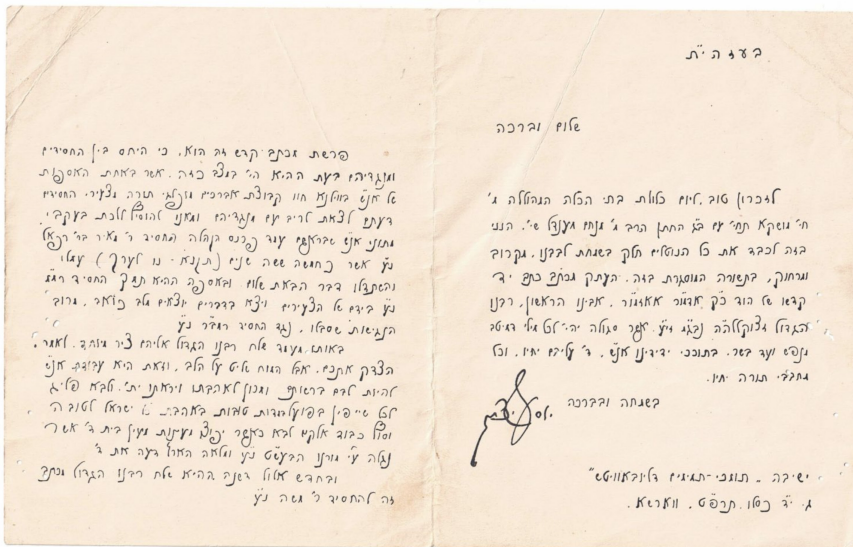 בעזהי"ת
שלום וברכה
לזכרון טוב, ליום כלולת בתי הכלה המהוללה מ'
חי' מושקא תחי' עם ב"ג החתן הרב מ' מנחם מענדל שי'. הנני
בזה לכבד את כל הנוטלים חלק בשמחת לבבנו, מקרוב
ומרחוק, בתשורה המוסגרת בזה. העתק מכתב כתב יד
קדשו של הוד כ"ק אדמו"ר אאזמו"ר, אבינו הראשון, רבנו
הגדול זצוקללה"ה נבג"מ זי"ע. אשר סגולה יהי' לכל מילי דמיטב
מנפש ועד בשר. בתוככי ידידינו אנ"ש, ד' עליהם יחיו, וכל
מחבבי תורה יחיו.
בשמחה ובברכה
ישיבה - תומכי-תמימים דליובאוויטש"
ג. י"ד כסלו. תרפ"ט. ווארשא.
פרשת מכתב קדש זה הוא, כי היחס בין החסידים
ומנגדיהם בעת ההיא הי' במצב כזה, אשר באחת האספות
של אנ"ש בווילנא חוו קבוצת אברכים מזקני תורה מצעירי החסידים
דעתם לצאת לריב עם מנגדיהם ומאנו להוסיל ללכת בעקבי
מתוני אנ"ש שבראשם עמד פרנס הקהלה החסיד ר' מאיר בר' רפאל
נ"ע אשר כחמשה ששה שנים עמלו
והשתדלו דבר הבאת שלום ובאספה ההיא תמך החסיד
נ"ע בידם של הצעירים ויצא בדברים יוצאים מלב כואב, מרוב
הנגישות שסבלו, נגד החסיד רמב"ר נ"ע
באותו מעמד שלח רבנו הגדול אליהם ציר מיוחד, לאמר:
הצדק אתכם, אבל המוח שליט על הלב, וזאת היא עבודת אנ"ש
להיות לבם ברשותם ומכון לאהבתו ויראתו ית'. ולבא פליג
לכל שייפין בפועל במדות טובות באהבת ישראל לטוב ה'
וסוף כבוד אלקים לבא כאשר יפוצו מעינות מעין בית ד' אשר
נגלה ע"י מורנו הבעש"ט נ"ע ומלאה הארץ דעה את ד'
ובחדש אלול דשנה ההיא שלח רבנו הגדול מכתב
זה להחסיד ר' משה נ"ע